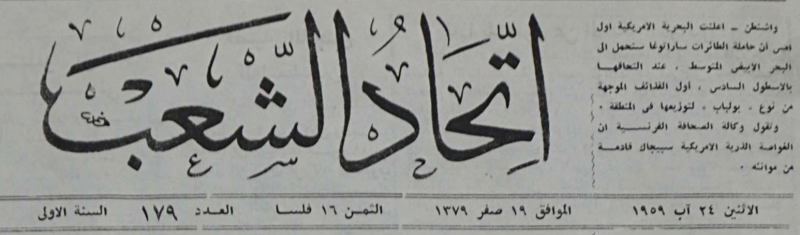 واشنطن - اعلنت البحرية الامريكية اول
امس ان حاملة الطائرات ساراتوغا ستحمل الى
البحر الابيض المتوسط ، عند التحاقها
بالاسطول السادس ، أول القذائف الموجهة
من نوع « بولباب » لتوزيعها في المنطقة .
وتقول وكالة الصحافة الفرنسية ان
الغواصة الذرية الامريكية سيبجاك قادمة
من موانئه .
اتحاد الشعب
الاثنين ٢٤ آب ١٩٥٩
الموافق ١٩ صفر ١٣٧٩
الثمن ١٦ فلسا
العدد ١٧٩
السنة الاولى